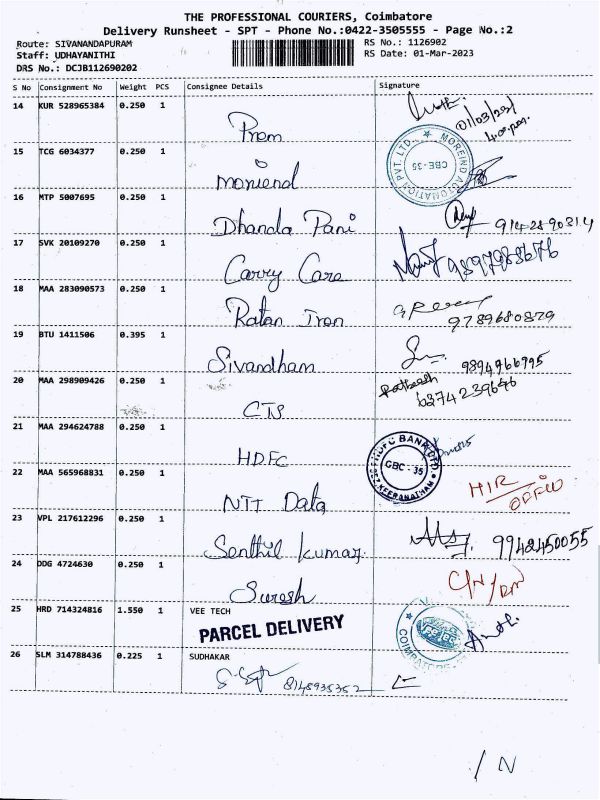 THE PROFESSIONAL COURIERS, Coimbatore
Delivery Runsheet - SPT - Phone No.:0422-3505555 - Page No.:2
Route: SIVANANDAPURAM
RS No.: 1126902
Staff: UDHAYANITHI
RS Date: 01-Mar-2023
DRS No.: DCJB112690202
S No Consignment No Weight PCS Consignee Details Signature
14 KUR 528965384 0.250 1
Prem
01/03/23
4.00 pm.
15 TCG 6034377 0.250 1
moriend
MOREIND AUTOMATION PVT. LTD.
CBE-35
16 MTP 5007695 0.250 1
Dhanda Pani
9142890314
17 SVK 20109270 0.250 1
Carry Care
9897988676
18 MAA 283090573 0.250 1
Ratan Iron
9789680879
19 BTU 1411506 0.395 1
Sivandham
9894966995
20 MAA 298909426 0.250 1
CTS
6374239646
21 MAA 294624788 0.250 1
HDFC
HDFC BANK LTD
CBC - 35
KEERANATHAM
22 MAA 565968831 0.250 1
NTT Data
23 VPL 217612296 0.250 1
Senthil Kumar
9942450055
24 DDG 4724630 0.250 1
Suresh
25 HRD 714324816 1.550 1 VEE TECH
PARCEL DELIVERY
26 SLM 314788436 0.225 1 SUDHAKAR
8148935352
/ N